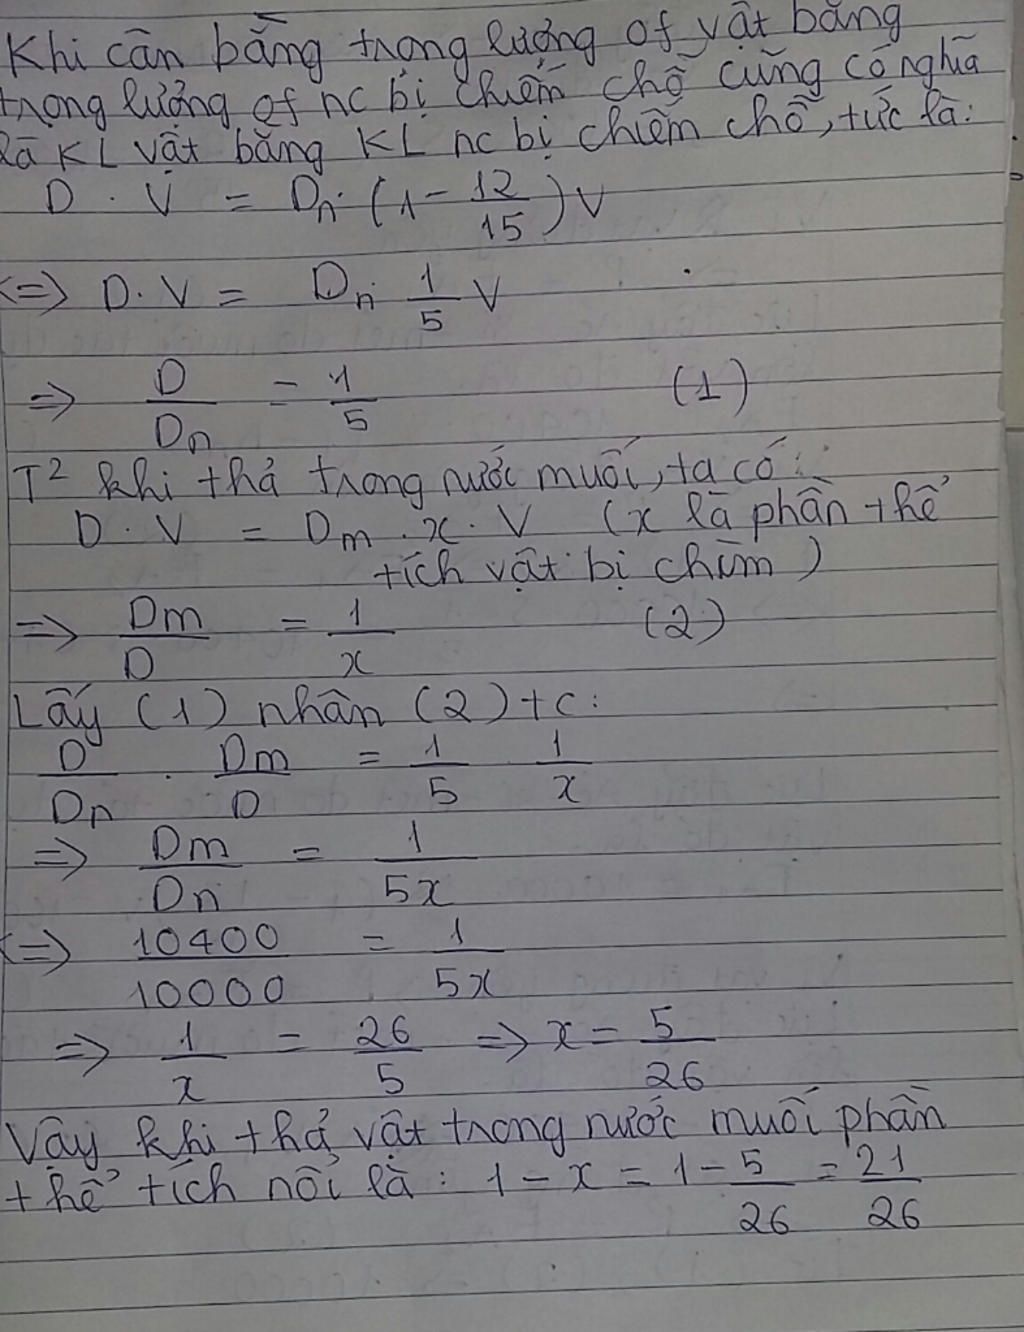 Khi cân bằng trọng lượng of vật bằng
trọng lượng of nc bị chiếm chỗ cũng có nghĩa
là KL vật bằng KL nc bị chiếm chỗ, tức là:
D . V = Dn. (1 - 12/15) V
<=> D. V = Dn. 1/5 V
=> D/Dn = 1/5 (1)
T² khi thả trong nước muối, ta có:
D . V = Dm . x . V (x là phần thể
tích vật bị chìm)
=> Dm/D = 1/x (2)
Lấy (1) nhân (2) + c:
D/Dn . Dm/D = 1/5 1/x
=> Dm/Dn = 1/5x
<=> 10400/10000 = 1/5x
=> 1/x = 26/5 => x = 5/26
Vậy khi thả vật trong nước muối phần
thể tích nổi là: 1 - x = 1 - 5/26 = 21/26